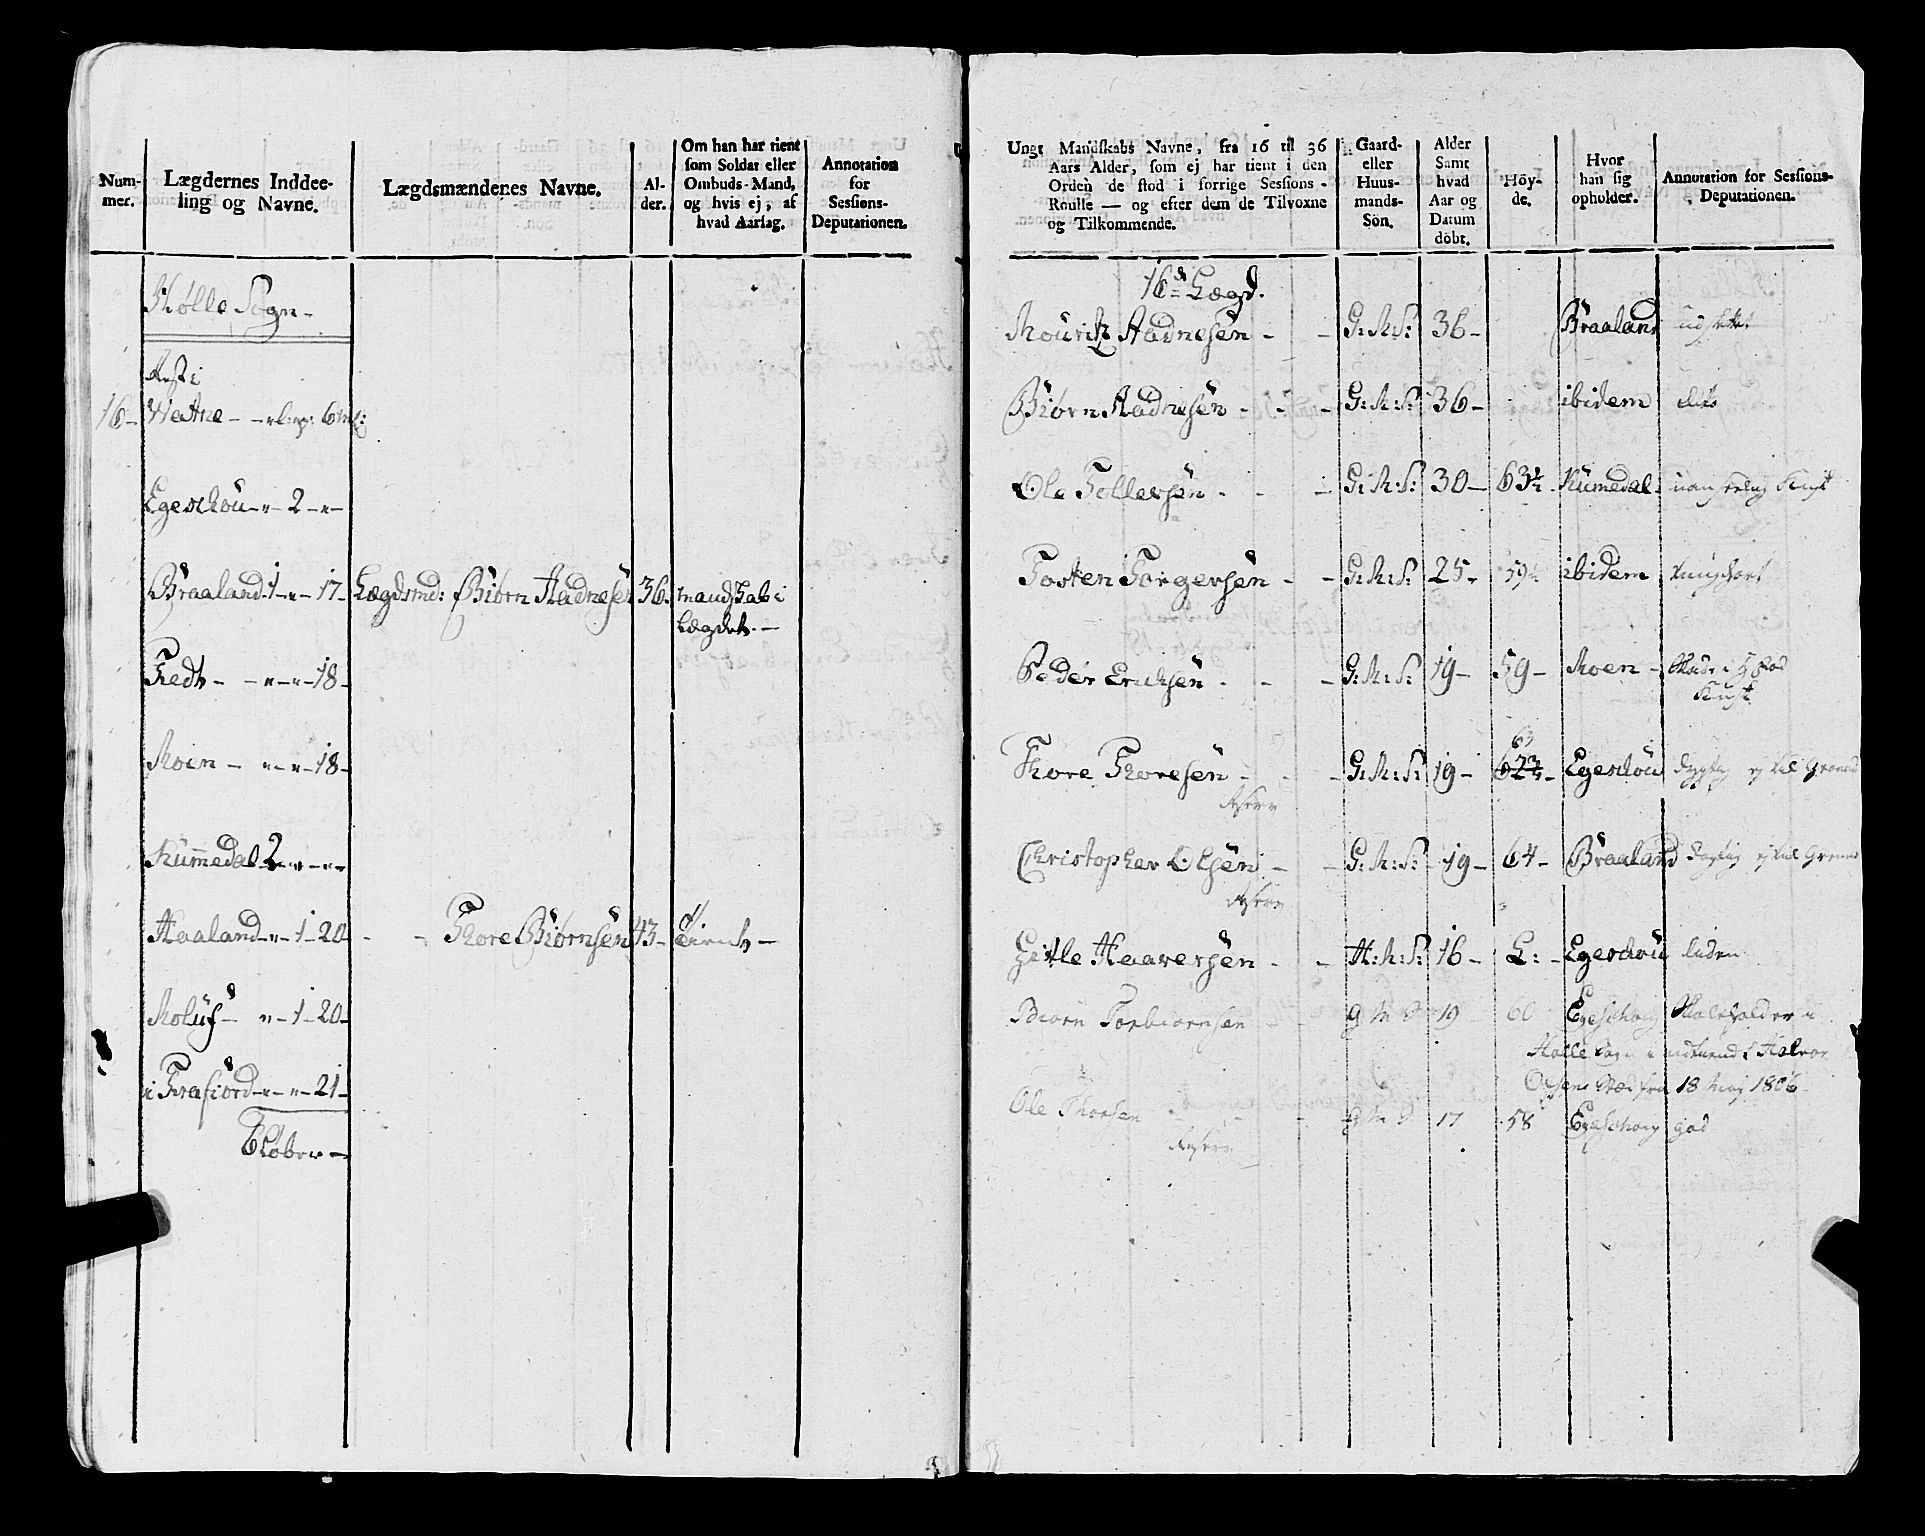 Num-
mer.
Lægdernes Inddee-
ling og Navne.
Lægdsmændenes Navne.
Al-
der.
Om han har tient
som Soldat eller
Ombuds-Mand,
og hvis ej, af
hvad Aarsag.
Annotation
for
Sessions-
Deputationen.
Holle Sogn
16 - Westne - - 6
Egeschou - " - 2 - " -
Braaland - 1 - " - 17 - Lægdsmd: Biørn Aadnesen 36. mandskab i
Lægdet. -
Fedt - - " - " - 18 -
Moen - " - " - 18 -
Kummedal 2 - " - " -
Haaland - " - 1 - 20 - - Thore Biørnsen 43 - Tient -
Moluf - " - 1 - 20 -
i Frafiord - " - " - 21 -
Ungt Mandskabs Navne, fra 16 til 36
Aars Alder, som ej har tient i den
Orden de stod i forrige Sessions-
Roulle — og efter dem de Tilvoxne
og Tilkommende.
Gaard-
eller
Huus-
mands-
Sön.
Alder
Samt
hvad
Aar og
Datum
döbt.
Höy-
de.
Hvor
han sig
opholder.
Annotation for Sessions-
Deputationen.
16de Lægd.
Mouritz Aadnesen - - G: M: S: 36 - Braaland udslettet
Biørn Aadnesen - - - G: M: S: 36 - ibidem dito
Ole Tollersen - - - G: M: S: 30 - 63½ Kumedal
Tosten Torgersen - - G: M: S: 25 - 59 ibidem
Peder Ericksen - - - G: M: S: 19 - 59 - Moen -
63
Thore Thoresen - - - G: M: S: 19 - 62¾ - Egeschou dygtig ej til
Reserv
Christopher Olsen - - G: M: S: - 19 - 64 - Braaland dygtig ej til
Reserv
Gitle Haaversen - - H: M: S: 16 - L: - Egeschou liden
Biørn Torbiørnsen G M S 19 60 Egeschoug Skoleholder i
Holle Sogn Halvor
Olsens Sted fra 18 May 1806
Ole Thorsen - - - G M S 17 58 Egeschoug god
Reserv